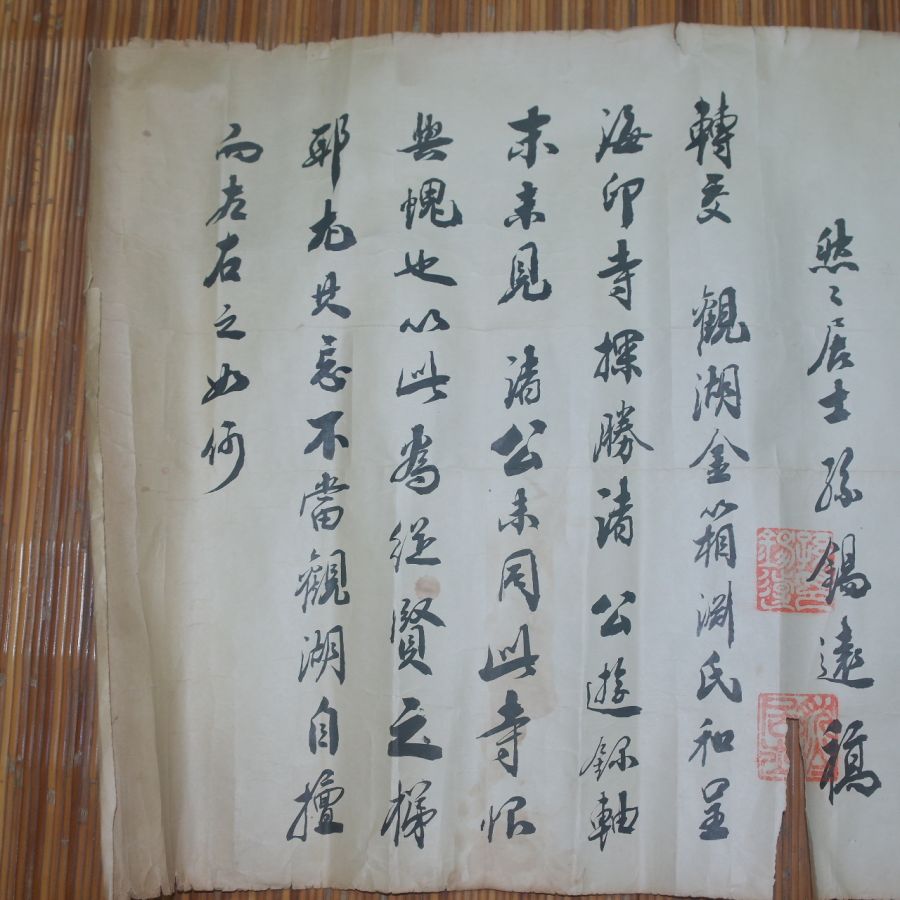 然〻居士孫錫遠稿
轉交 觀湖金箱淵氏和呈
海印寺探勝諸 公遊錄軸
末未見 諸公未同此寺恨
與愧也以此為從賢之梯
耶 忘不當觀湖自擅
而左右之如何